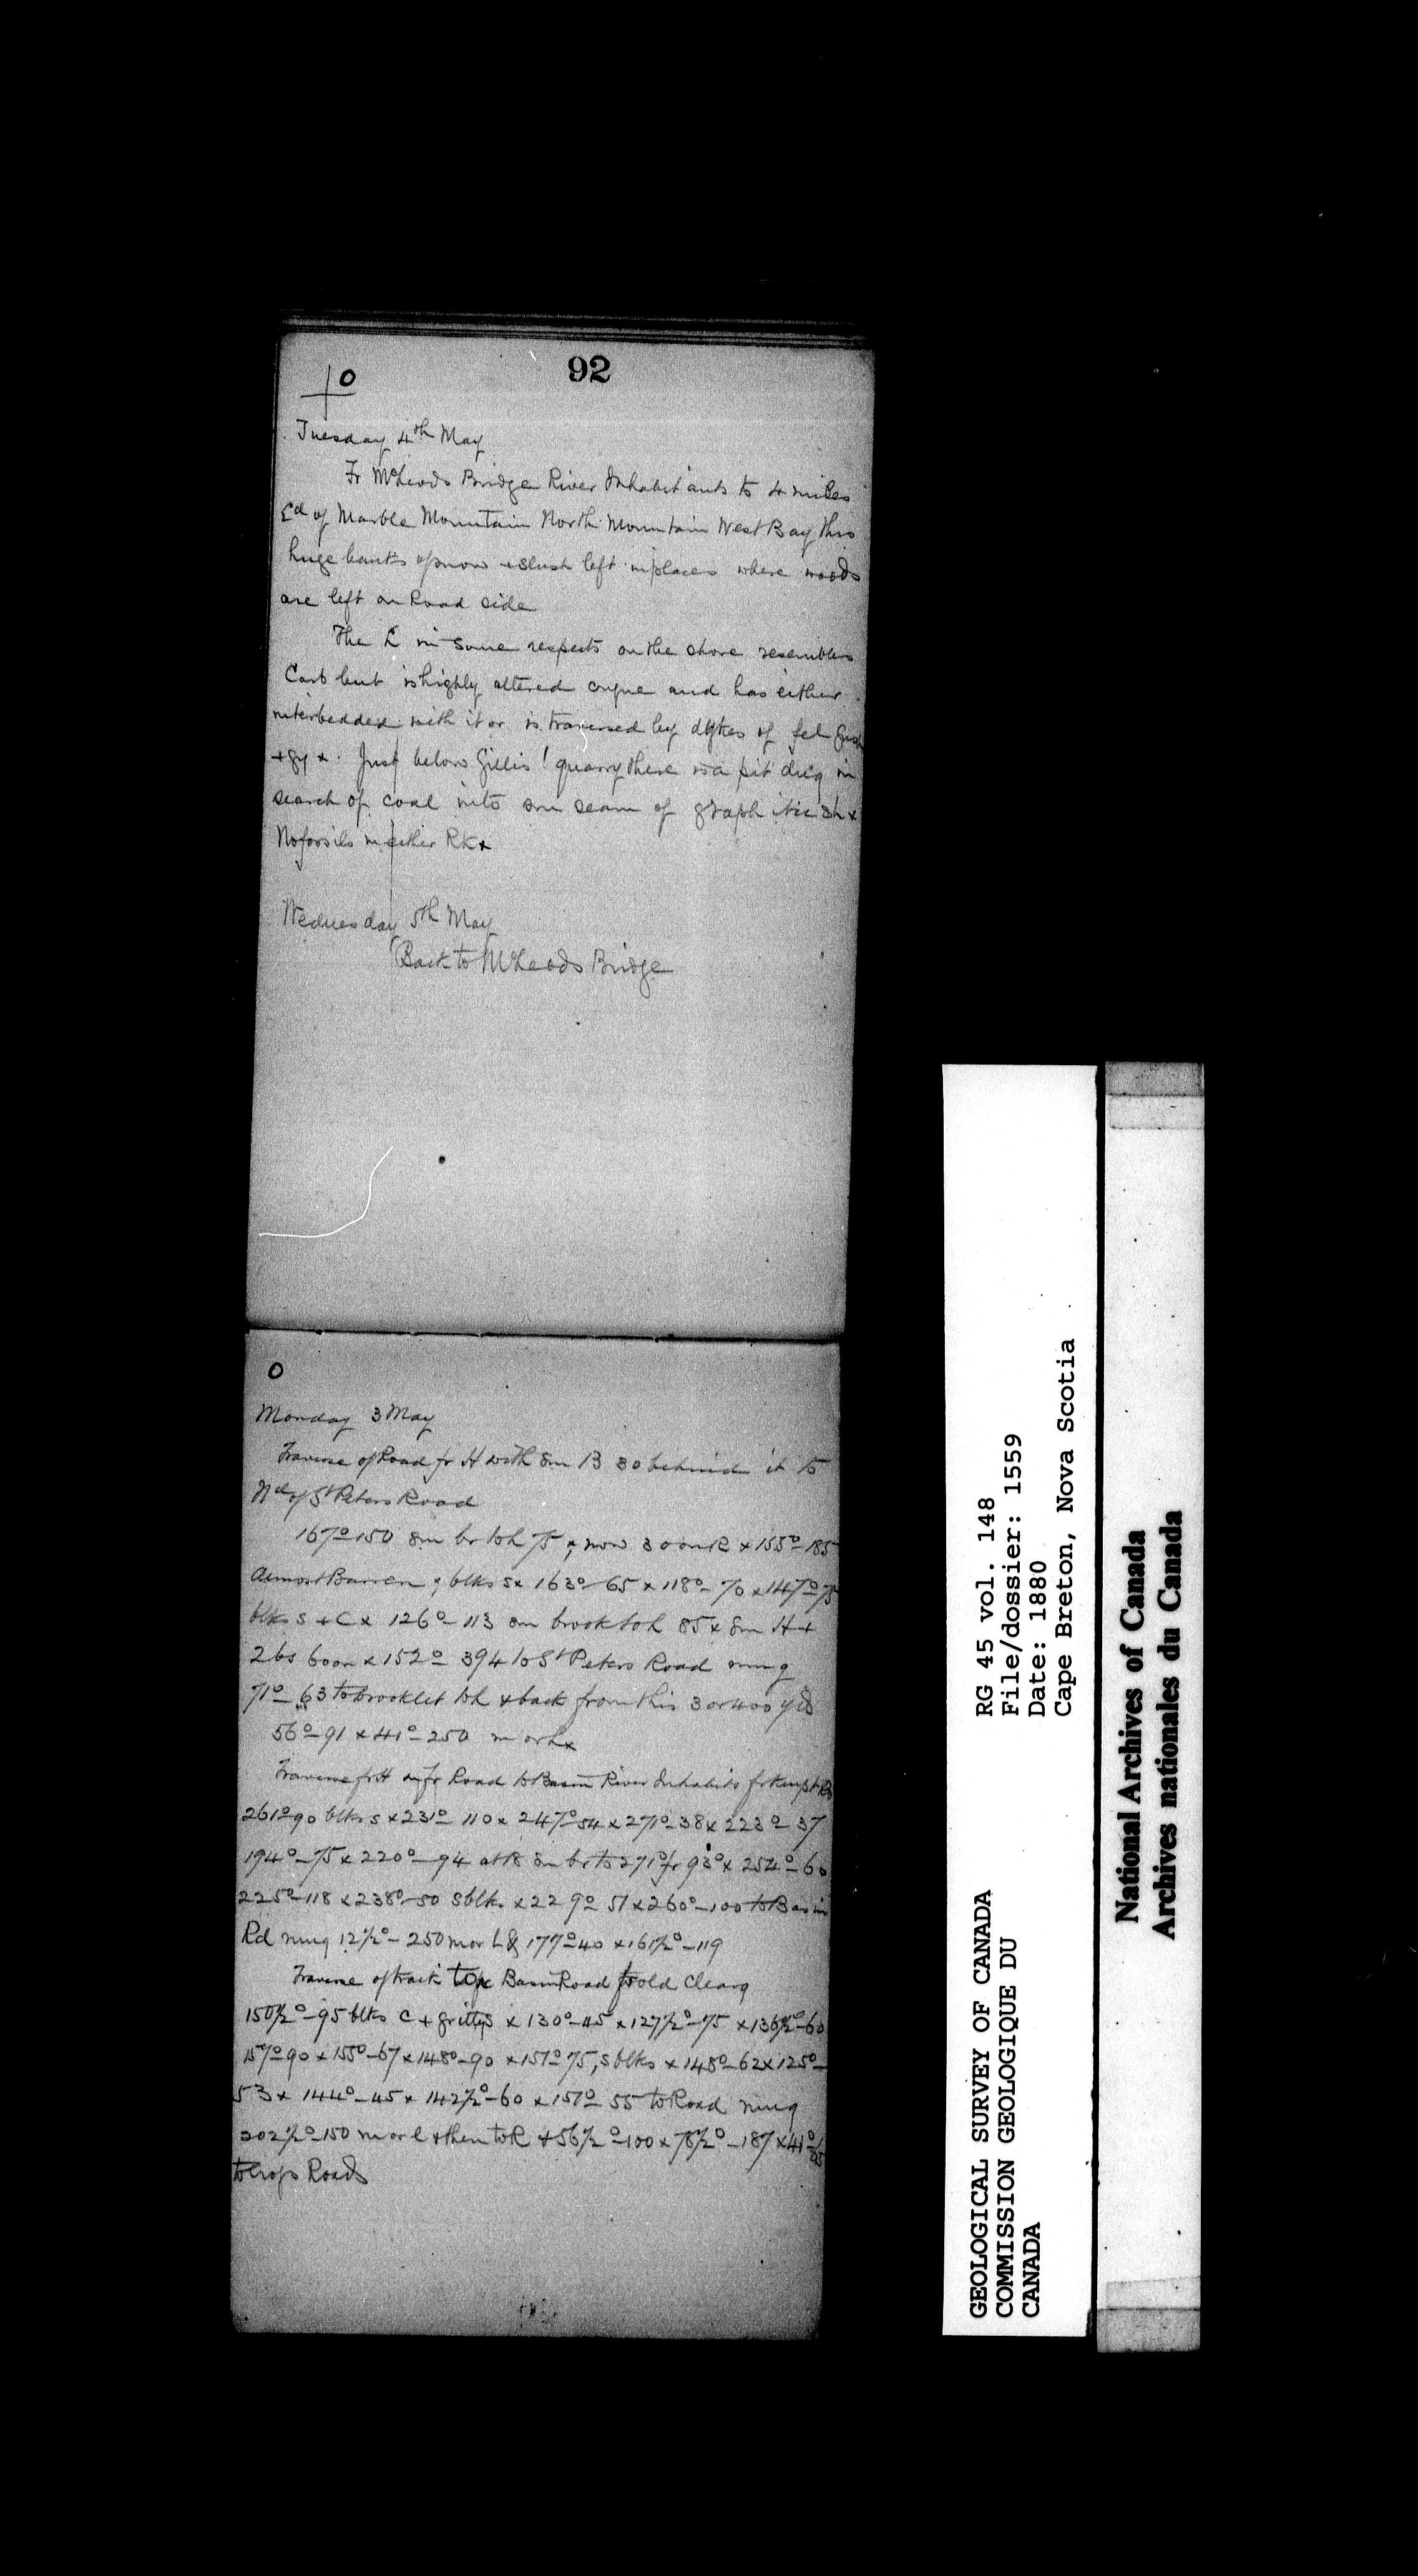 92
0
Tuesday 4th May
Fr McLeods Bridge River Inhabitants to 4 miles
Ed of Marble Mountain North Mountain West Bay thro
huge banks of snow & slush left in places where woods
are left on Road side
The L in some respects on the shore resembles
Carb but is highly altered congne and has either
interbedded with it or is traversed by dykes of fel
+ gy x. Just below Gillis' quarry there is a pit dug in
search of coal into sm seam of graphitic sh x
No fossils in either Rk x
Wednesday 5th May
Back to McLeods Bridge
0
Monday 3 May
Traverse of Road fr H with sm B 30 behind it to
Nd of St Peters Road
167°-150 sm br to h 75 x, now 300 on R x 155°-185
Almost Barren, blks s x 163°-65 x 118°-70 x 147°-75
blks s + c x 126°-113 sm brook to h 85 x sm H +
2 bs 600 x 152° 394 to St Peters Road rung
71°-63 to brooklet to h & back from this 3 or 400 yds
56°-91 x 41°-250 m or l x
Traverse fr H on fr Road to Basin River Inhabits fr Kempt Rd
261°-90 blks s x 231°-110 x 247°-54 x 271°-38 x 223°-37
194°-75 x 220°-94 at 18 sm br to 271° fr 93° x 254°-60
225°-118 x 238°-50 s blks x 229° 51 x 260°-100 to Basin
Rd rung 12½°-250 m or l & 177°-40 x 161½°-119
Traverse of track Basin Road fr old Clearg
150½°-95 blks c + gritty s x 130°-45 x 127½°-75 x 136½°-60
157°-90 x 155°-67 x 148°-90 x 151°-75, s blks x 148°-62 x 125°-
53 x 144°-45 x 142½°-60 x 151°-55 to Road rung
202½°-150 m or l & then to R & 56½°-100 x 78½°-187 x 41°
to crofs Roads
GEOLOGICAL SURVEY OF CANADA
COMMISSION GEOLOGIQUE DU
CANADA
RG 45 vol. 148
File/dossier: 1559
Date: 1880
Cape Breton, Nova Scotia
National Archives of Canada
Archives nationales du Canada